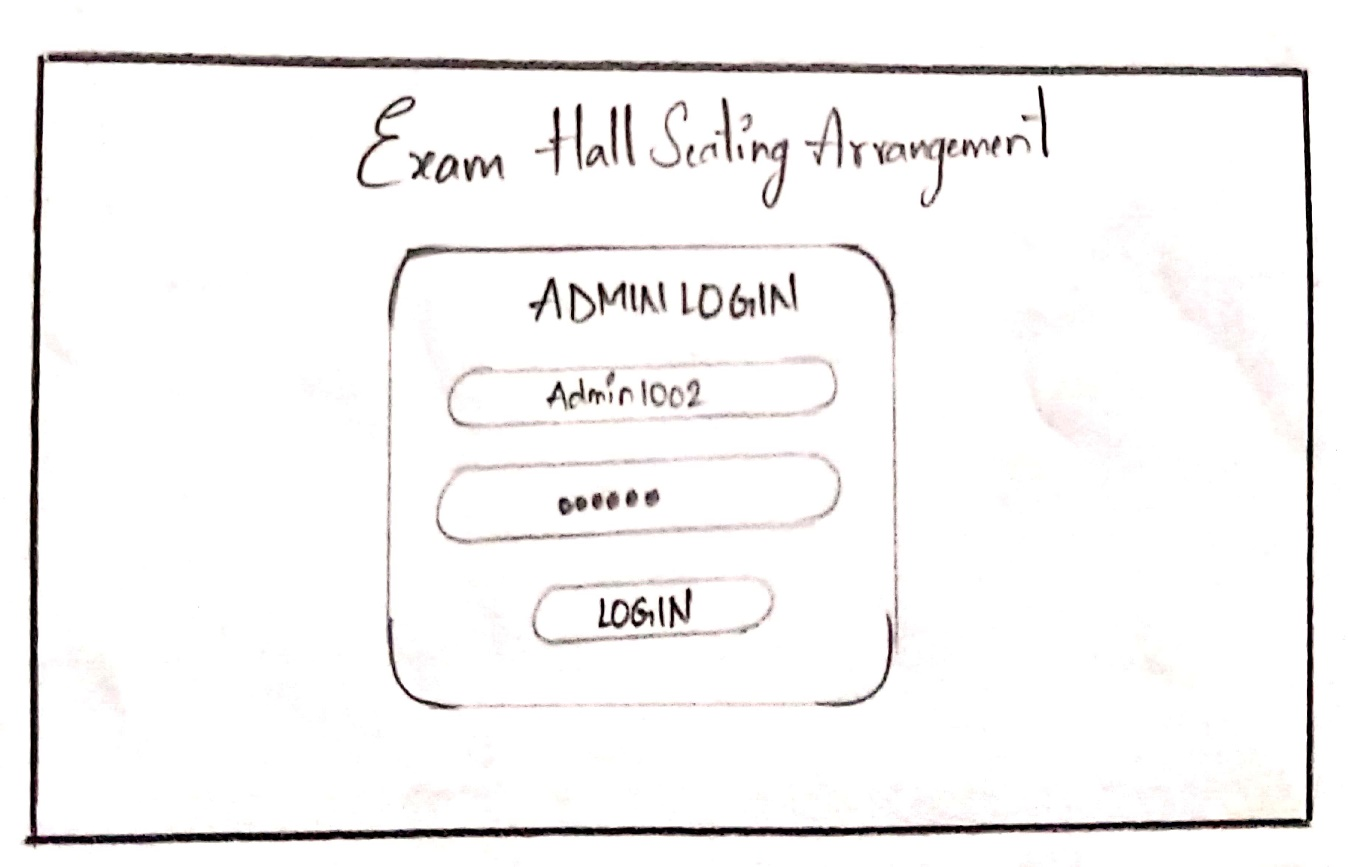 Exam Hall Seating Arrangement
ADMIN LOGIN
Admin1002
••••••
LOGIN